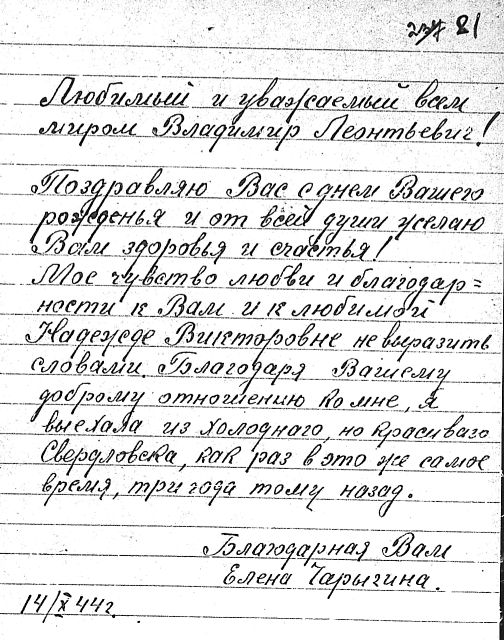 81
Любимый и уважаемый всем
миром Владимир Леонтьевич!
Поздравляю Вас с днем Вашего
рожденья и от всей души желаю
Вам здоровья и счастья!
Мое чувство любви и благодар=
ности к Вам и к любимой
Надежде Викторовне не выразить
словами. Благодаря Вашему
доброму отношению ко мне, я
выехала из холоднаго, но красиваго
Свердловска, как раз в это же самое
время, три года тому назад.
Благодарная Вам
Елена Чарыгина.
14/X 44г.